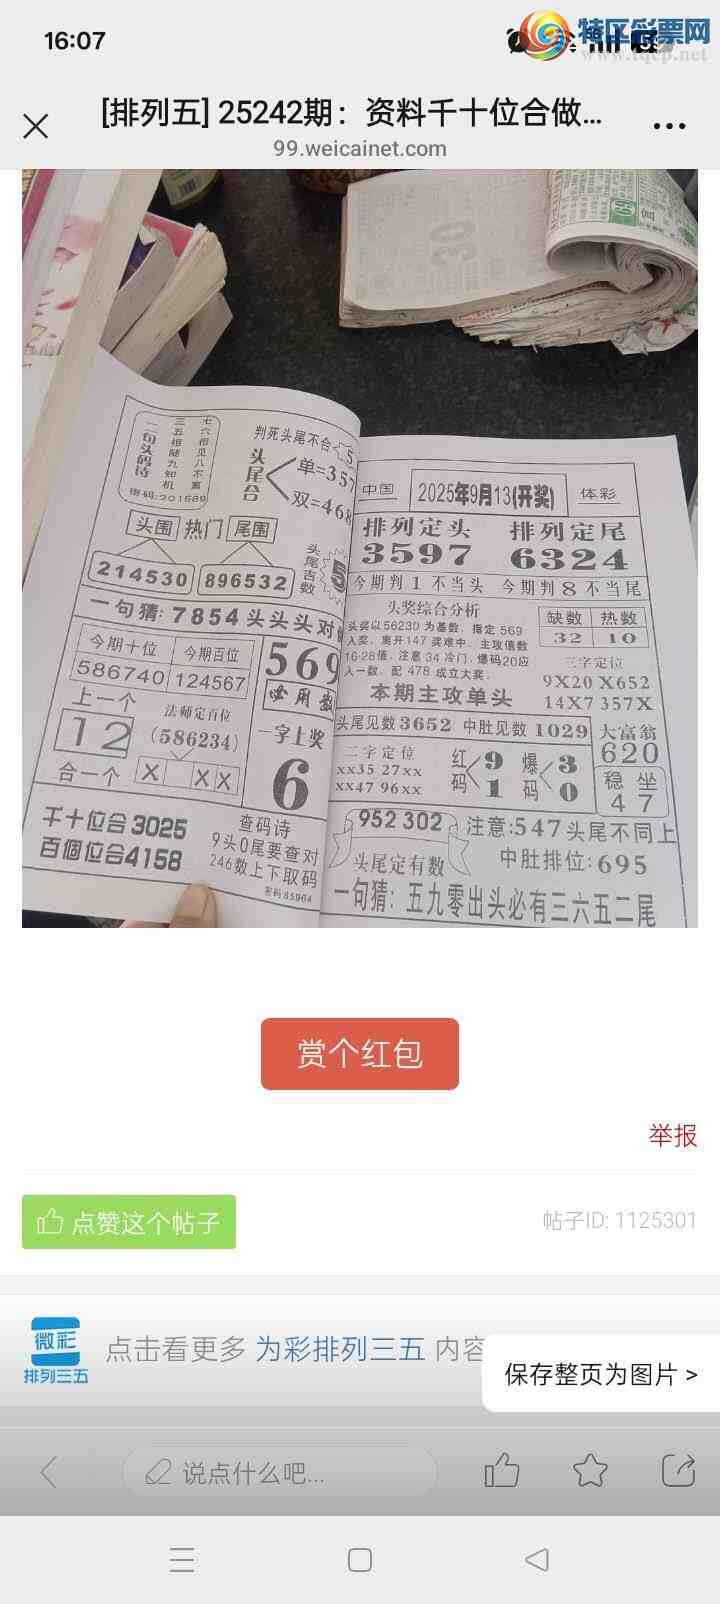 16:07
特区彩票网
www.tqcp.net
[排列五] 25242期：资料千十位合做...
99.weicainet.com
二句头码诗
三五相随九知机
七六相见八不离
密码:201689
判死头尾不合
5
头尾合
单=357
双=468
头围 热门 尾围
214530 896532
头尾吉数
5
一句猜: 7854头头头对
今期十位 今期百位
586740 124567
569
上一个
12
法师定首位
(586234)
合一个
X X X
一字上奖
6
千十位合 3025
百個位合4158
查码诗
9头0尾要查对
246数上下取码
密码85964
中国 2025年9月13(开奖) 体彩
排列定头 排列定尾
3597 6324
今期判1不当头 今期判8不当尾
头奖综合分析
头奖以56230为基数，指定569
入奖，离开147奖难中，主攻值数
16-28值，注意34冷门，爆码20应
入一数，配478成立大奖。
本期主攻单头
缺数 热数
32 10
三字定位
9X20 X652
14X7 357X
头尾见数3652 中肚见数1029
大富翁
620
二字定位
xx35 27xx
xx47 96xx
红码
9
1
爆码
3
0
稳坐
4 7
952 302
头尾定有数
注意:547头尾不同上
中肚排位:695
一句猜: 五九零出头必有三六五二尾
赏个红包
举报
点赞这个帖子
帖子ID: 1125301
微彩
排列三五
点击看更多 为彩排列三五 内容
保存整页为图片 >
说点什么吧...